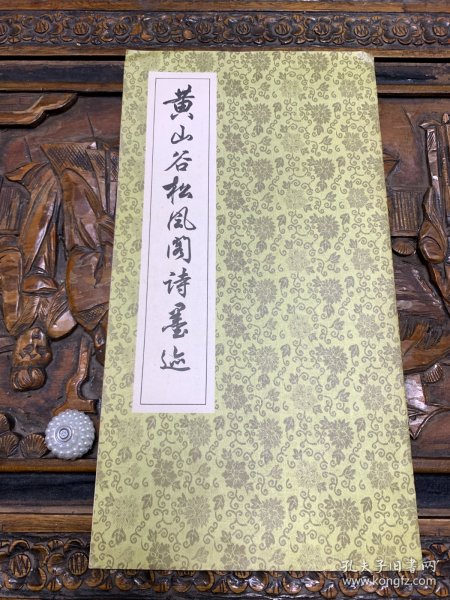 黄山谷松风阁诗墨迹
孔夫子旧书网
www.kongfz.com